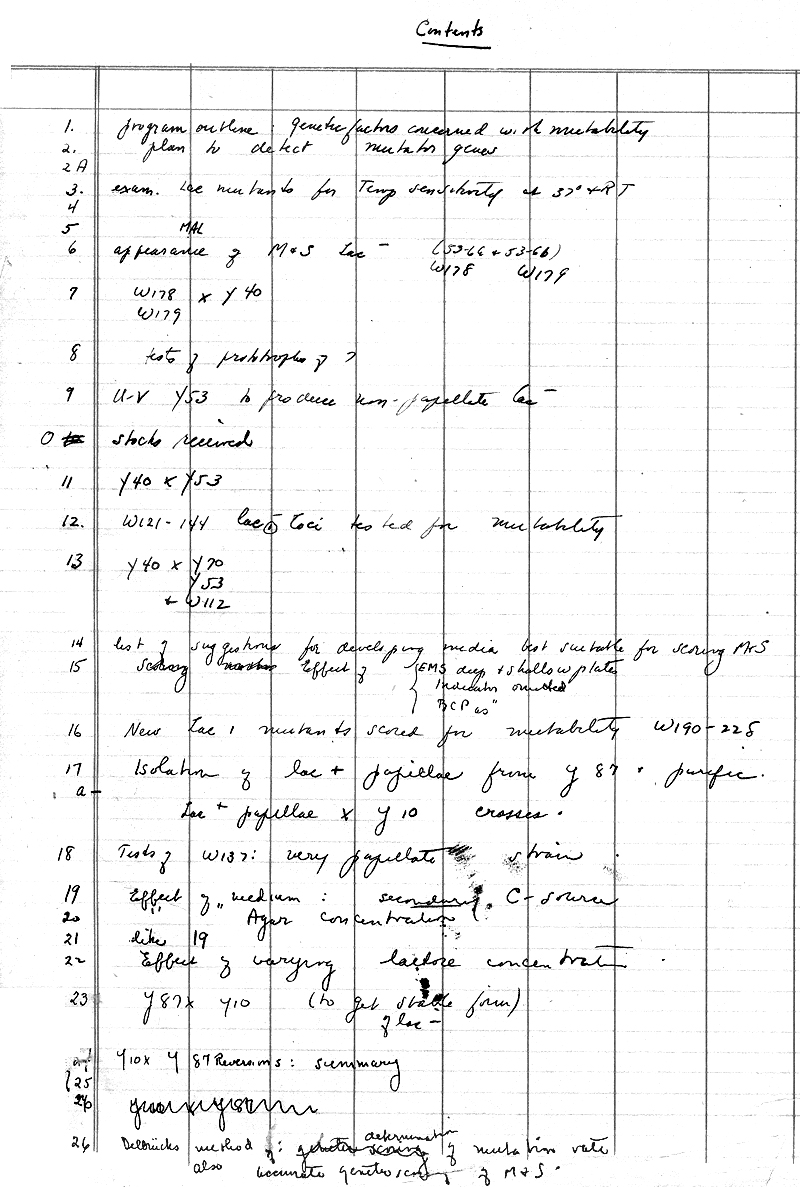 Contents
1. program outline: genetic factors concerned with mutability
2. plan to detect mutator genes
2A
3. exam. Lac mutants for Temp sensitivity at 37° + RT
4
5 MAL
6 appearance of M+S Lac - (53-66 + 53-6b)
W178 W179
7 W178 x Y40
W179
8 tests of prototrophs of 7
9 U-V Y53 to produce non-papellate lac -
0 stocks received
11 Y40 x Y53
12. W121-144 lac Loci tested for mutability
13 Y40 x Y70
Y53
+ W112
14 list of suggestions for developing media best suitable for scoring M+S
15 Effect of EMS deep + shallow plates
Indicator omitted
BCP as "
16 New Lac 1 mutants scored for mutability W190-228
17 Isolation of lac + papillae from Y 87 + purific.
a -
Lac + papillae x Y 10 crosses.
18 Tests of W137: very papillate strain
19 Effect of medium: secondary C-source
20 " " Agar concentration
21 like 19
22 Effect of varying lactose concentration
23 Y87 x Y10 (to get stable form)
of lac -
Y10 x Y 87 Reversions: summary
25
26
determination
26 Delbrücks method of: of mutation rate
also accurate genetic scoring of M+S.